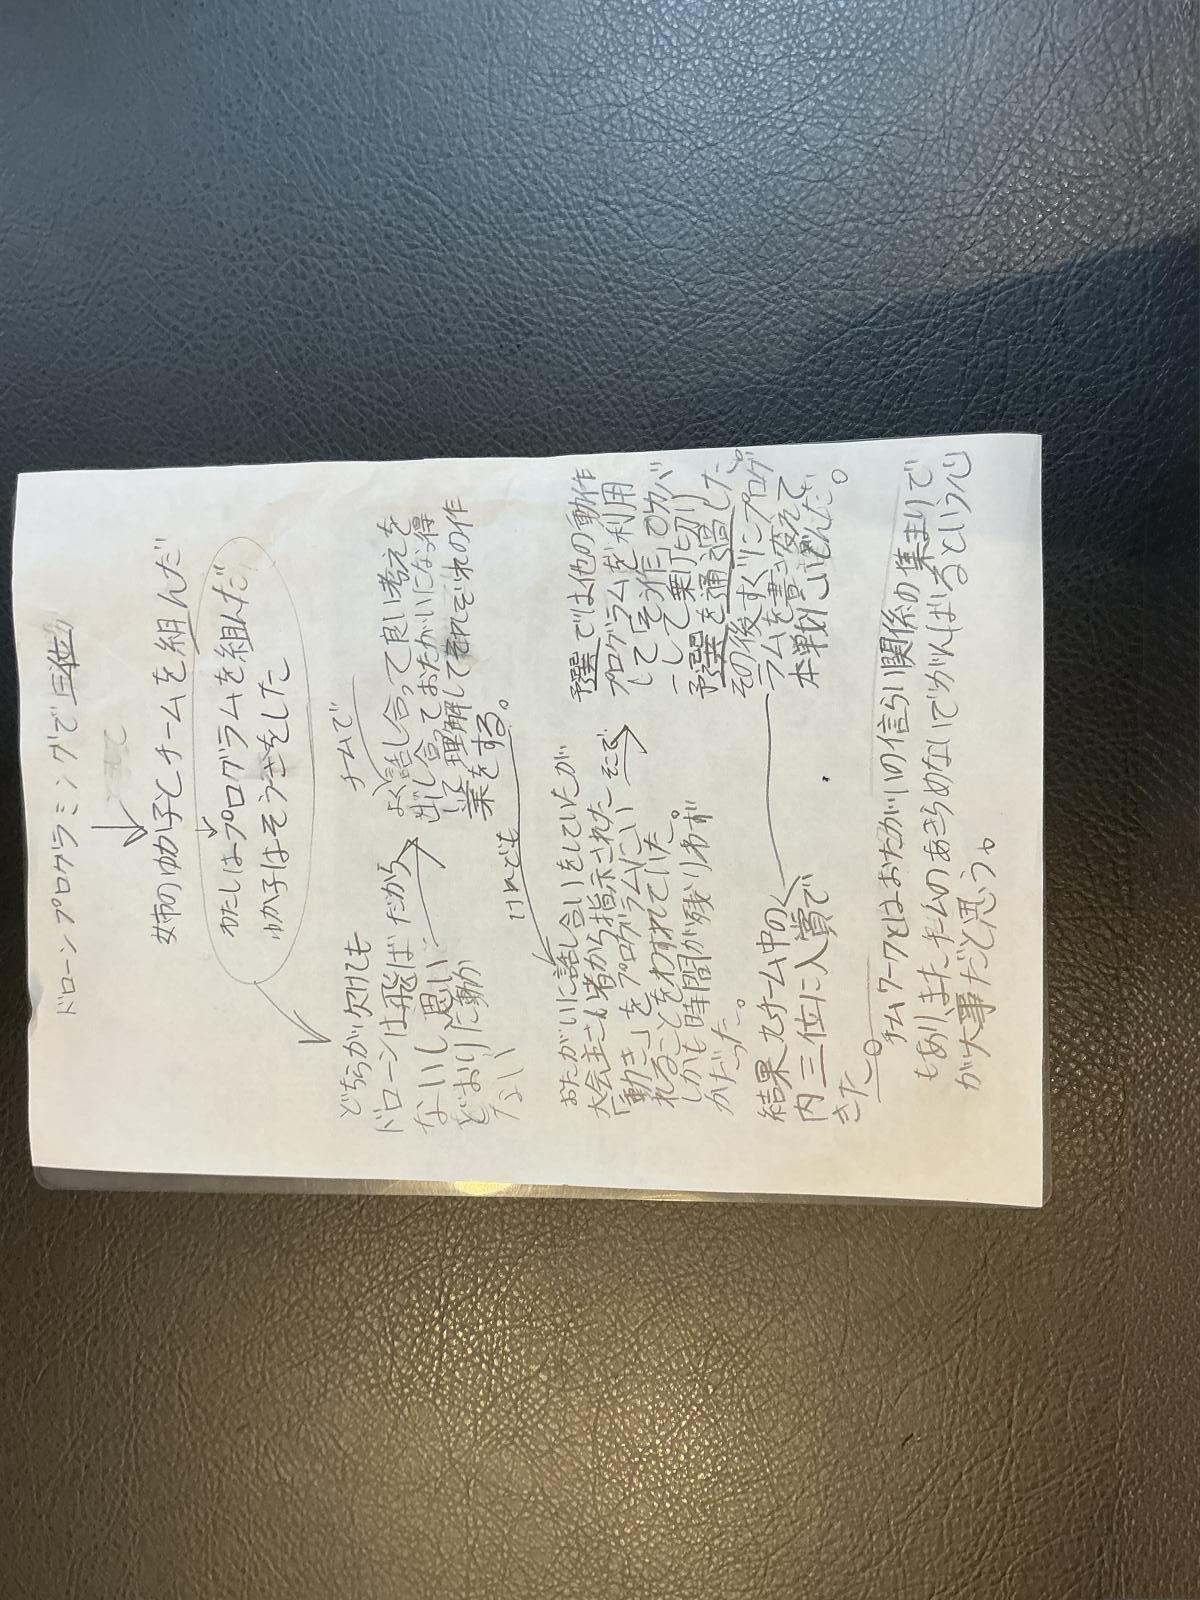 ドローンプログラミングで三位
姉のゆか子とチームを組んだ
わたしはプログラムを組んだ
ゆか子はそうさをした
どちらが欠けても
ドローンは飛ば
ないし、思い
どおりに動か
ない
だから
チームで
よく話し合って良い考えを
出し合っておたがいになっ得
して理解してそれぞれの作
業をする。
けれども
おたがいに話し合いをしていたが
大会主さい者から指示された
「動き」をプログラムにい
れることをわすれていた。
しかも時間が残りわず
かだった。
そこで
予選では他の動作
プログラムを利用
して「そう作」のカバ
ーして乗り切り
予選を通過した。
その後すぐにプログ
ラムを書き変えて
本戦にいどんだ。
結果九チーム中の
内三位に入賞で
きた。
チームワークとはおたがいの信らい関係の集まりで
もあり、またチームのあきらめないでがんばるという心
が大事だと思う。